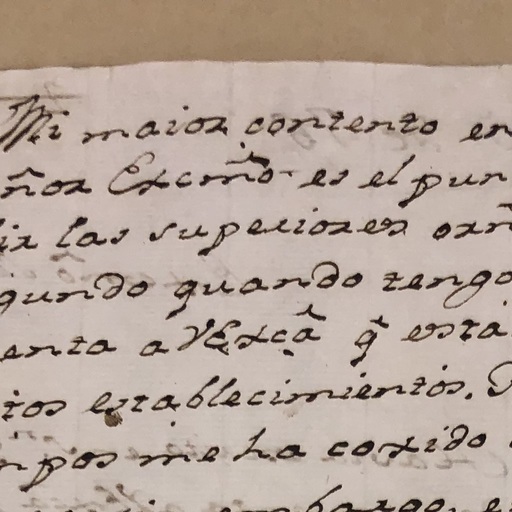 Mi maior contento en
ñor Excmõ es el pun
lir las superiores orñ
gundo quando tengo
enta a VExcã q̃ esta
tos establecimientos.
npos me ha corido